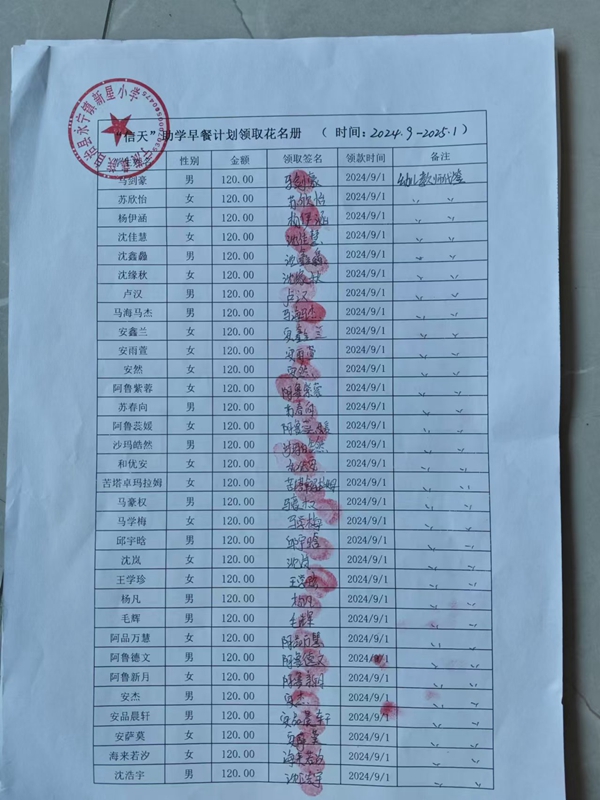 永宁镇新星小学
“信天”助学早餐计划领取花名册 （ 时间：2024.9-2025.1）
性别 金额 领取签名 领款时间 备注
马剑豪 男 120.00 马剑豪 2024/9/1 幼儿教师代签
苏欣怡 女 120.00 苏欣怡 2024/9/1 〃 〃
杨伊涵 女 120.00 杨伊涵 2024/9/1 〃 〃
沈佳慧 女 120.00 沈佳慧 2024/9/1 〃 〃
沈鑫驫 男 120.00 2024/9/1 〃 〃
沈缘秋 女 120.00 沈缘秋 2024/9/1 〃 〃
卢汉 男 120.00 卢汉 2024/9/1 〃 〃
马海马杰 男 120.00 2024/9/1 〃 〃
安鑫兰 女 120.00 安鑫兰 2024/9/1 〃 〃
安雨萱 女 120.00 安雨萱 2024/9/1 〃 〃
安然 女 120.00 安然 2024/9/1 〃 〃
阿鲁紫蓉 女 120.00 阿鲁紫蓉 2024/9/1 〃 〃
苏春向 男 120.00 苏春向 2024/9/1 〃 〃
阿鲁蕊媛 女 120.00 阿鲁蕊媛 2024/9/1 〃 〃
沙玛皓然 男 120.00 沙玛皓然 2024/9/1 〃 〃
和优安 女 120.00 2024/9/1 〃 〃
苦塔卓玛拉姆 女 120.00 2024/9/1 〃 〃
马豪权 男 120.00 马豪权 2024/9/1 〃 〃
马学梅 女 120.00 马学梅 2024/9/1 〃 〃
邱宇晗 男 120.00 邱宇晗 2024/9/1 〃 〃
沈岚 女 120.00 沈岚 2024/9/1 〃 〃
王学珍 女 120.00 王学珍 2024/9/1 〃 〃
杨凡 男 120.00 杨凡 2024/9/1 〃 〃
毛辉 男 120.00 毛辉 2024/9/1 〃 〃
阿品万慧 女 120.00 阿品万慧 2024/9/1 〃 〃
阿鲁德文 男 120.00 阿鲁德文 2024/9/1 〃 〃
阿鲁新月 女 120.00 阿鲁新月 2024/9/1 〃 〃
安杰 男 120.00 安杰 2024/9/1 〃 〃
安品晨轩 男 120.00 安品晨轩 2024/9/1 〃 〃
安萨莫 女 120.00 2024/9/1 〃 〃
海来若汐 女 120.00 海来若汐 2024/9/1 〃 〃
沈浩宇 男 120.00 沈浩宇 2024/9/1 〃 〃